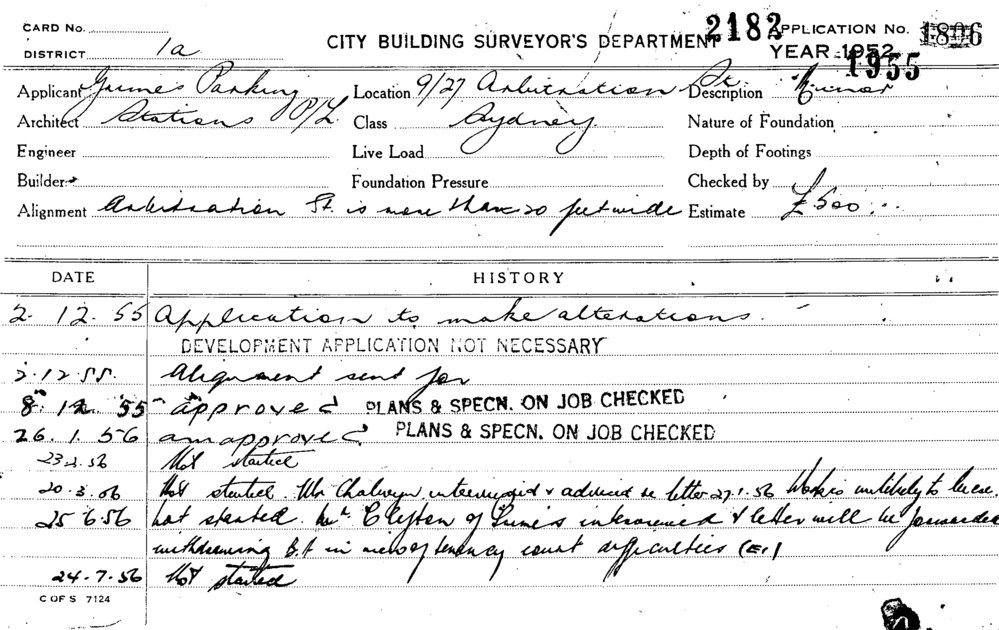 CARD No. 2182 APPLICATION No. 1806
DISTRICT 1a CITY BUILDING SURVEYOR'S DEPARTMENT YEAR 1952 1955
Applicant Grimes Parking Location 9/27 Arbitration St. Description Minor
Architect Stations P/L Class Sydney Nature of Foundation
Engineer Live Load Depth of Footings
Builder Foundation Pressure Checked by
Alignment Arbitration St. is more than 20 feet wide Estimate £500
DATE HISTORY
2. 12. 55 Application to make alterations.
DEVELOPMENT APPLICATION NOT NECESSARY
2.12.55. Alignment sent for
8. 12. 55 approved PLANS & SPECN. ON JOB CHECKED
26. 1. 56 am approved PLANS & SPECN. ON JOB CHECKED
Not started
20.3.56 Not started. Mr interviewed & advised re letter 27.1.56 Work is unlikely to
25.6.56 Not started. Mr. Clifton of Grimes interviewed & letter will be forwarded
withdrawing B.A in view of tenancy court difficulties
24.7.56 Not started
C OF S 7124